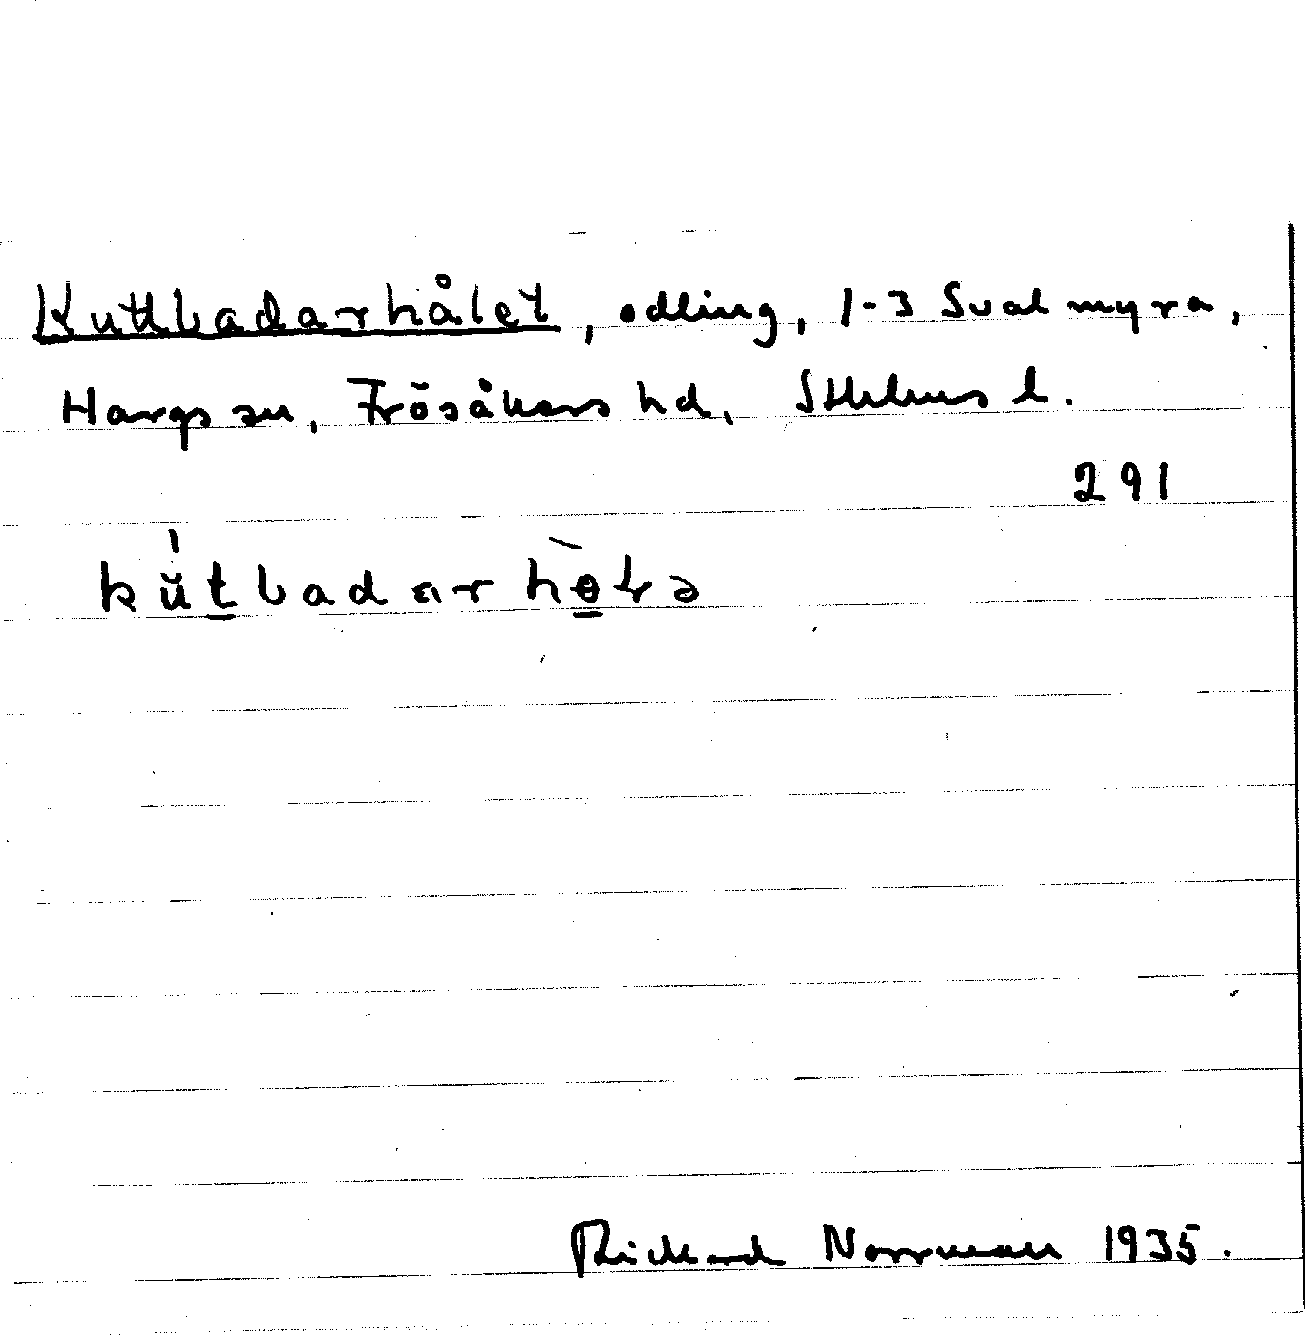 Kuttbadarhålet, odling, 1-3 Svalmyra,
Hargs sn, Frösåkers hd, Sthlms l.
291
kŭtbadarhɵ̀lə
Rickard Norrman 1935.